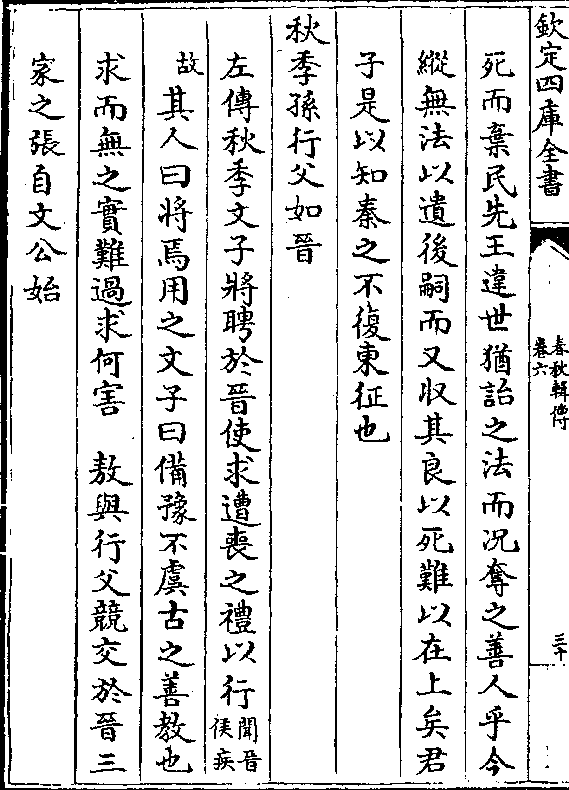 欽定四庫全書
春秋輯傳
卷六
三十
死而棄民先王違世猶詒之法而况奪之善人乎今
縱無法以遺後嗣而又収其良以死難以在上矣君
子是以知秦之不復東征也
秋季孫行父如晉
左傳秋季文子將聘於晉使求遭喪之禮以行聞晉侯疾
故其人曰將焉用之文子曰備豫不虞古之善教也
求而無之實難過求何害　敖與行父競交於晉三
家之張自文公始